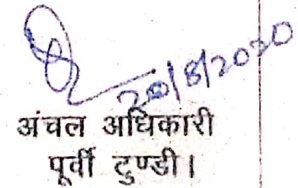 20/8/2020
अंचल अधिकारी
पूर्वी टुण्डी।